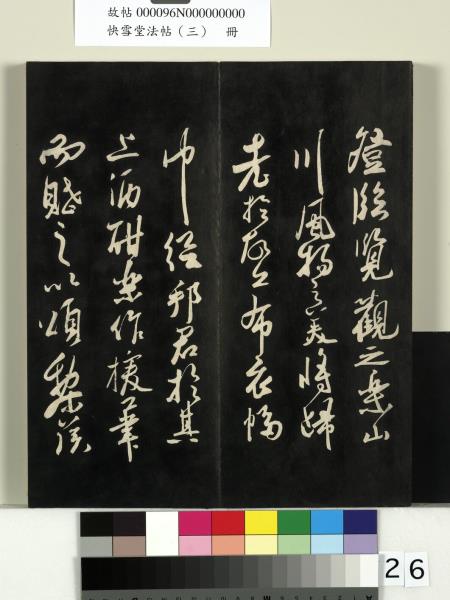 故帖 000096N000000000
快雪堂法帖（三） 冊
登臨覽觀之樂山
川風物之美將歸
老於故丘布衣幅
巾從邦君於其
上酒酣樂作援筆
而賦之以頌黎侯
26